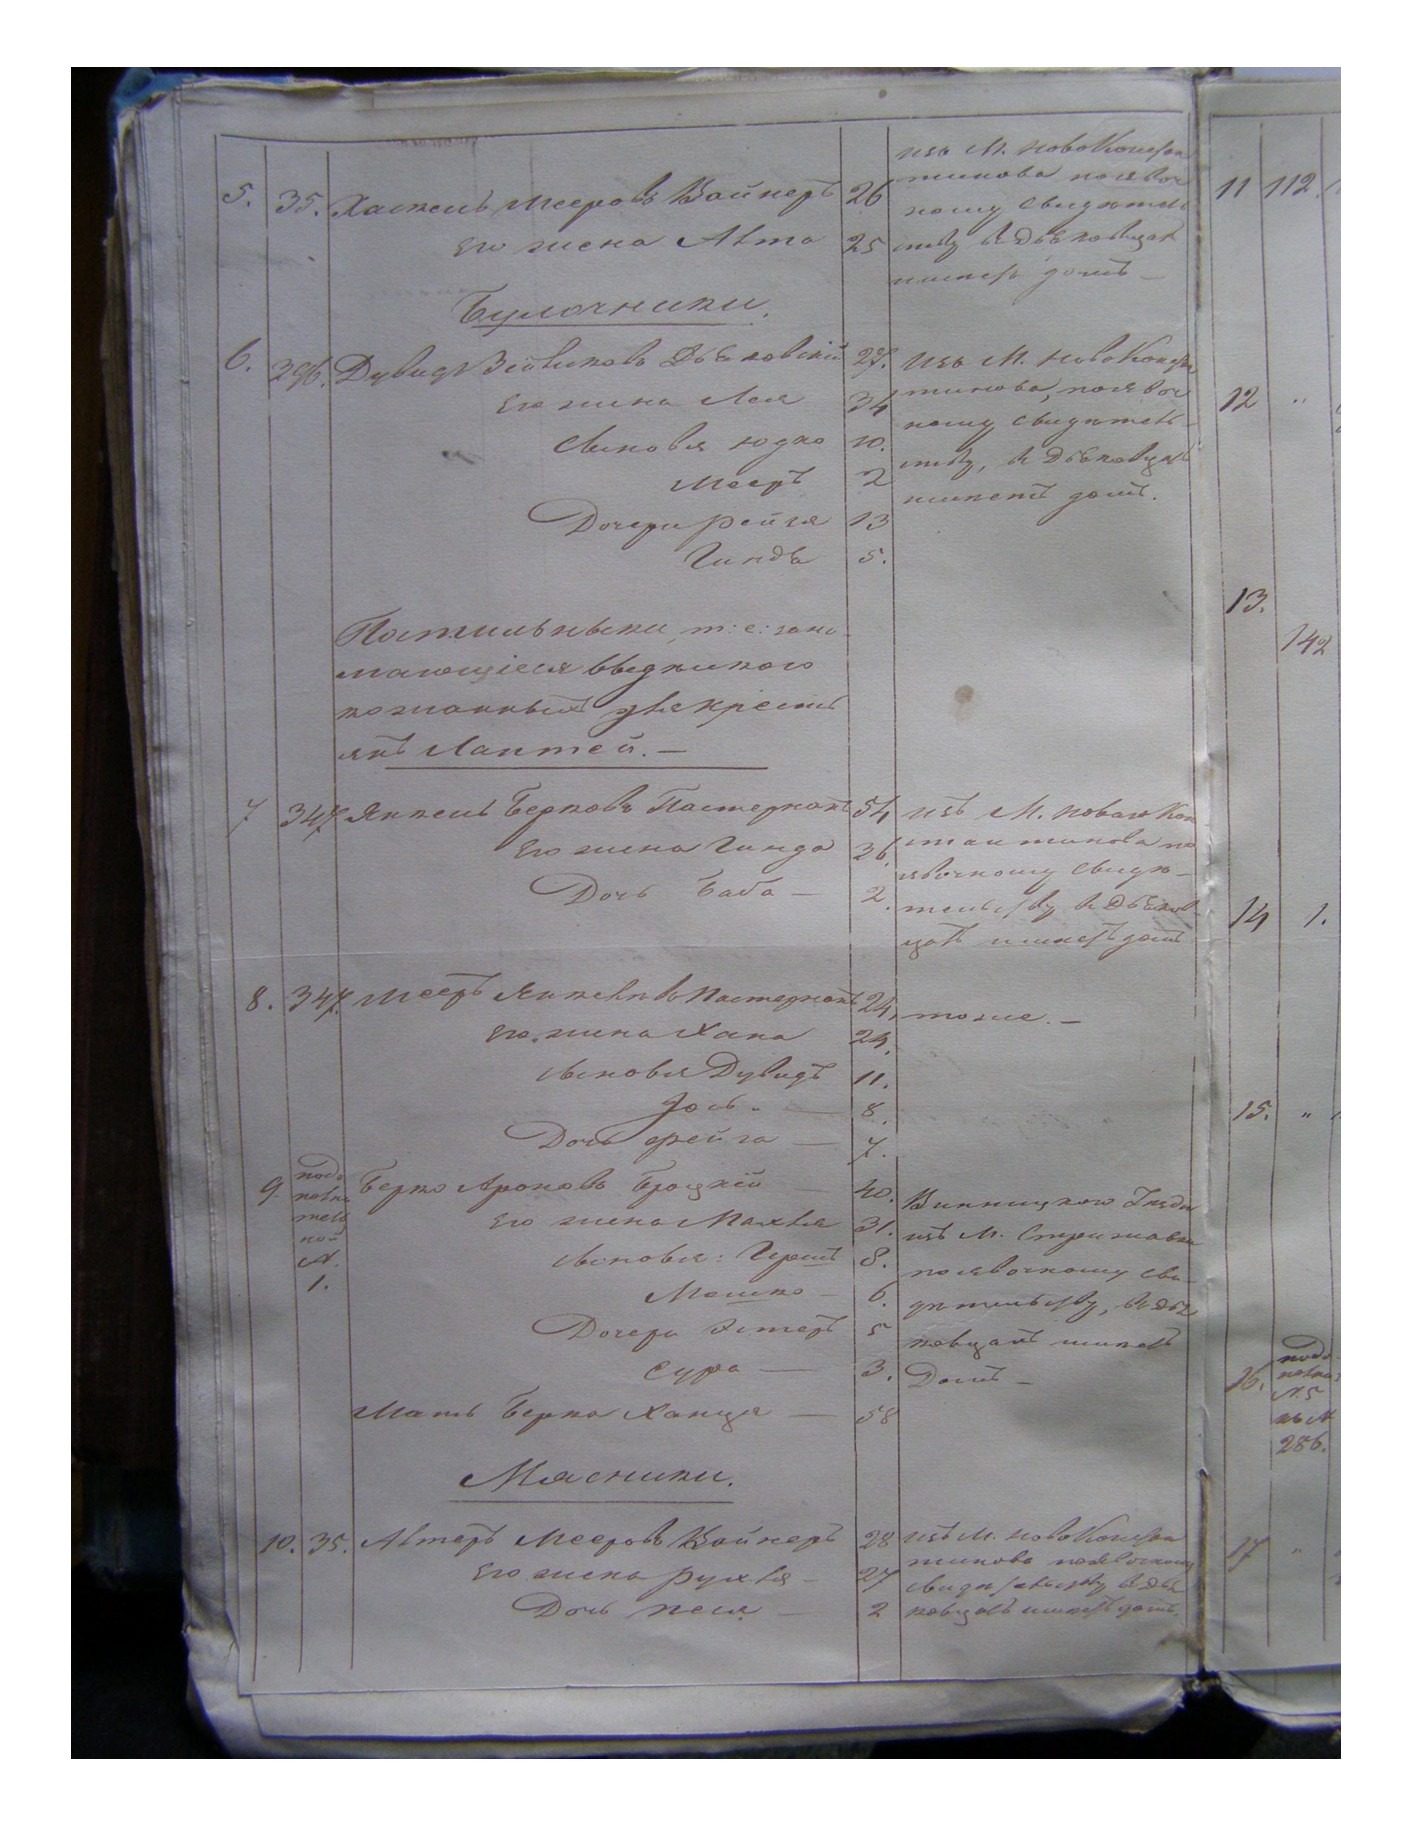 5. 35. Хаскель Мееровъ Вайнеръ 26
Его жена Алта 25
изъ М. Новоконстан
тинова по явоч
ному свидѣтель
ству въ Дьяковцахъ
имѣетъ домъ —
Булочники.
6. 296. Дувидъ Зейликовъ Дьяковскій 27.
Его жена Лея 34
Сыновья Юдко 10.
Мееръ 2
Дочери Рейзя 13
Гинда 5.
изъ М. Новоконстан
тинова, по явоч
ному свидѣтель-
ству, въ Дьяковцахъ
имѣетъ домъ.
т: е: зани-
мающіеся выдѣлкою
кожанныхъ для крестъ
янъ Лаптей. —
7 347. Янкель Берковъ Пастернакъ 54
Его жена Гинда 36.
Дочь Баба — 2.
изъ М. Новаго Кон
стантинова по
явочному свидѣ-
тельству въ Дьяков-
цахъ имѣетъ домъ
8. 347. Мееръ Янкелевъ Пастернакъ 24,
Его жена Хана 24.
Сыновья Дувидъ 11.
Іось. — 8.
Дочь Фейга — 7.
тоже. —
9. подо
пол
тель
ной
N.
1.
Берко Ароновъ Броцкій — 40.
Его жена Махля 31.
Сыновья: Гершъ 8.
Мошко — 6.
Дочери Эстеръ 5
Сура — 3.
Мать Берка Ханця — 58
Винницкого Уѣзда
изъ М. Стрижавки
по явочному сви-
дѣтельству, въ Дья
ковцахъ имѣетъ
Домъ —
Мясники.
10. 35. Алтеръ Мееровъ Вайнеръ 28
Его жена Рухля — 27
Дочь Песя — 2
изъ М. Новоконстан
тинова по явочному
свидѣтельству въ Дья
ковцахъ имѣетъ домъ.
11 112.
12 "
13.
142
14 1.
15. "
16.
N. 5
къ N
286.
17 "